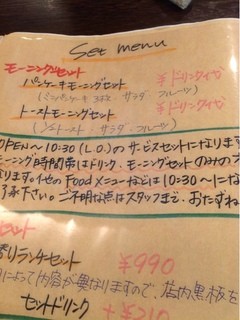 Set menu
モーニングセット
パンケーキモーニングセット ¥ドリンクダイヤ
(ミニパンケーキ サラダ フルーツ)
トーストモーニングセット ¥ドリンクダイヤ
(トースト・サラダ・フルーツ)
OPEN〜10:30(L.O.)のサービスセットになります
モーニング時間帯はドリンク・モーニングセットのみの
ます。他のFoodメニューなどは10:30〜にな
了承下さい。ご不明な点はスタッフまで、おたずね
セット
香りランチセット ¥990
によって内容が異なりますので、店内黒板を
セットドリンク +¥210